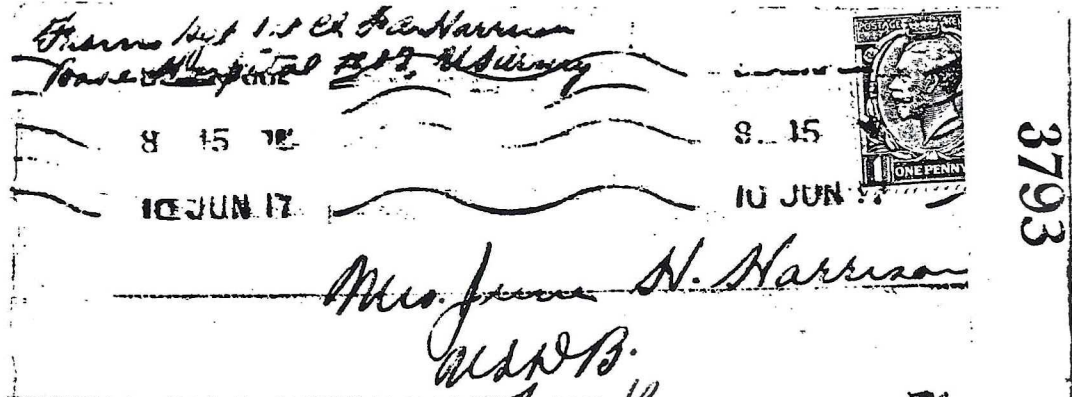 From Sgt 1st Cl Harrison
Base Hospital #12, US Army
8 15
10 JUN 17
8 15
10 JUN 17
POSTAGE
1 ONE PENNY
3793
Mrs. June H. Harrison
U.S.D.B.